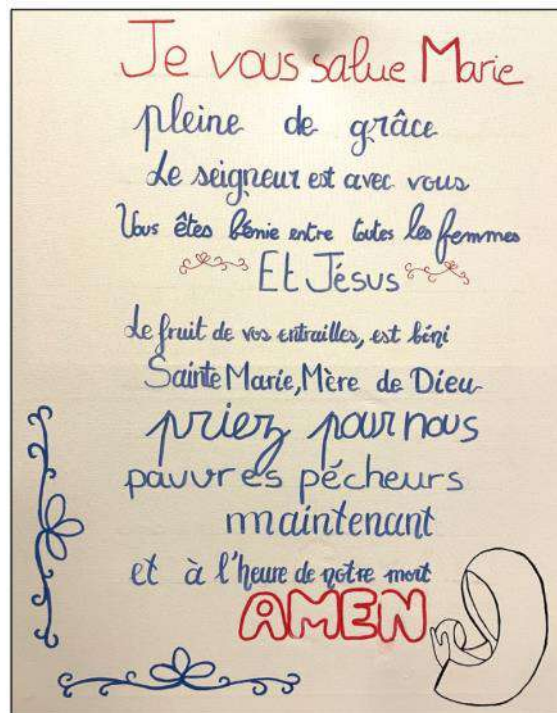 Je vous salue Marie
pleine de grâce
Le seigneur est avec vous
Vous êtes bénie entre toutes les femmes
Et Jésus
Le fruit de vos entrailles, est béni
Sainte Marie, Mère de Dieu
priez pour nous
pauvres pécheurs
maintenant
et à l'heure de notre mort
AMEN